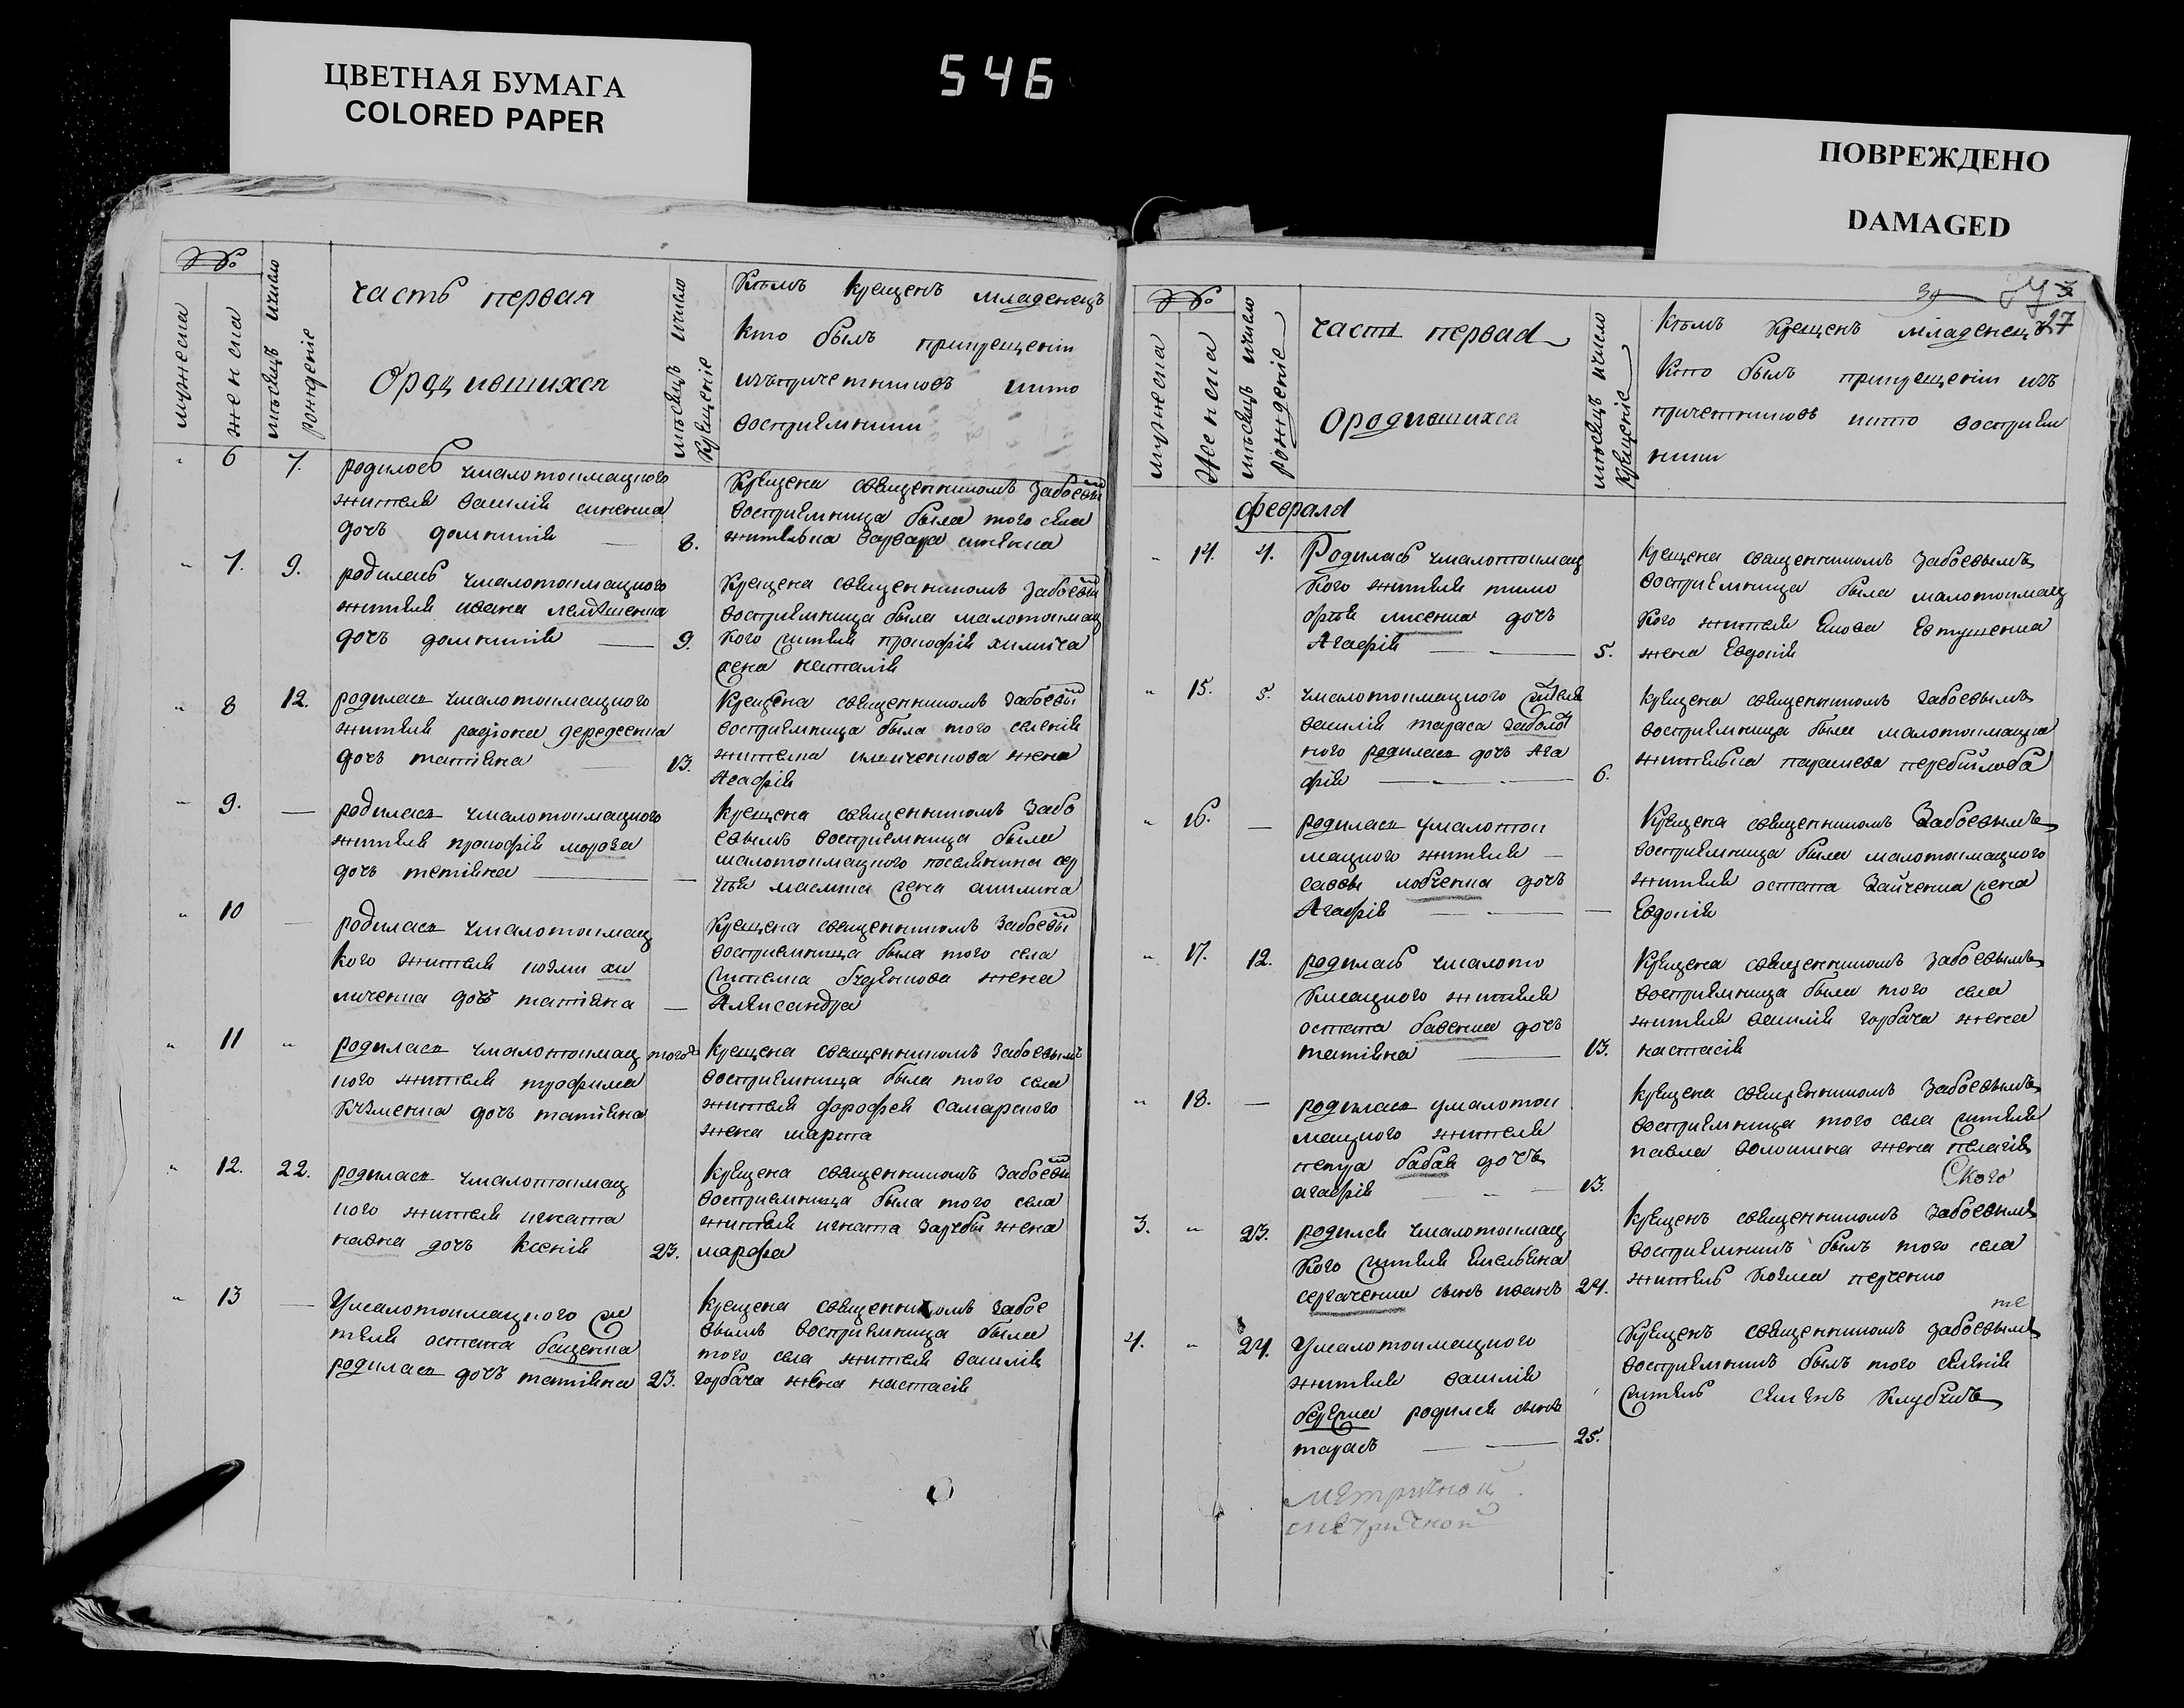 ЦВЕТНАЯ БУМАГА
COLORED PAPER
546
ПОВРЕЖДЕНО
DAMAGED
№№
мужеска
женска
мѣсяцъ и число
рожденіе
часть первая
О родившихся
мѣсяцъ и число
крещеніе
Кѣмъ крещенъ младенецъ
кто былъ при крещеніи
изъ причетниковъ и кто
восприемники
6 7. родилась у малотокмацкого
жителя василія
дочь домникія 8.
Крещена священникомъ Забоевым
восприемница была того села
жителька варвара
7. 9. родилась у малотокмацкого
жителя ивана лемѣшенка
дочь домникія 9.
Крещена священникомъ Забоевым
восприемница была малотокмац
кого жителя прокофія
жена наталія
8 12. родилась у малотокмацкого
жителя радіона
дочь татіяна 13.
Крещена священникомъ Забоевым
восприемница была того селенія
жителя жена
Агафія
9. — родилась у малотокмацкого
жителя прокофія мороза
дочь татіяна —
крещена священникомъ Забо
евымъ восприемница была
малотокмацкого поселянина сер
гѣя жена акилина
10 — родилась у малотокмац
кого жителя козми хи
личенка дочь татіяна —
Крещена священникомъ Забоевым
восприемница была того села
жителя жена
Александра
11 " родилась у малотокмац того
кого жителя трофима
дочь татіяна
крещена священникомъ Забоевымъ
восприемница была того села
жителя дорофея самарского
жена марфа
12. 22. родилась у малотокмац
кого жителя игната
дочь ксенія 23.
крещена священникомъ Забоевым
восприемница была того села
жителя игната жена
марфа
13 — У малотокмацкого жи
теля остапа бащенка
родилась дочь татіяна 23.
крещена священникомъ Забое
вымъ восприемница была
того села жителя василія
горбача жена настасія
39
27
№№
мужеска
женска
мѣсяцъ и число
рожденіе
часть первая
О родившихся
мѣсяцъ и число
крещеніе
Кѣмъ крещенъ младенецъ
Кто былъ при крещеніи изъ
причетниковъ и кто восприем
ники
февраля
14. 4. Родилась у малотокмац
кого жителя тимо
фѣя лисенка дочь
Агафія — — 5.
крещена священникомъ Забоевымъ
восприемница была малотокмац
кого жителя Евтушенка
жена Евдокія
15. 5. у малотокмацкого жителя
василія тараса
родилась дочь Ага
фія — — 6.
крещена священникомъ Забоевымъ
восприемница была малотокмацка
жителька
16. — родилась у малоток
мацкого жителя —
саввы лобченка дочь
Агафія — — —
Крещена священникомъ Забоевымъ
восприемница была малотокмацкого
жителя остапа Зайченка жена
Евдокія
17. 12. родилась у малото
кмацкого жителя
остапа бавенка дочь
татіяна — 13.
Крещена священникомъ Забоевымъ
восприемница была того села
жителя василія горбача жена
настасія
18. — родилась у малоток
мацкого жителя
петра бабая дочь
агафія — 13.
крещена священникомъ Забоевымъ
восприемница того села жителя
павла волошина жена пелагія
ского
3. " 23. родился у малотокмац
кого жителя Емельяна
сергаченка сынъ иванъ 24.
крещенъ священникомъ Забоевымъ
восприемникъ былъ того села
житель козма
те
4. " 24. У малотокмацкого
жителя василія
родился сынъ
тарасъ — — 25.
Крещенъ священникомъ Забоевымъ
восприемникъ былъ того селенія
житель семенъ
метричной
метричной